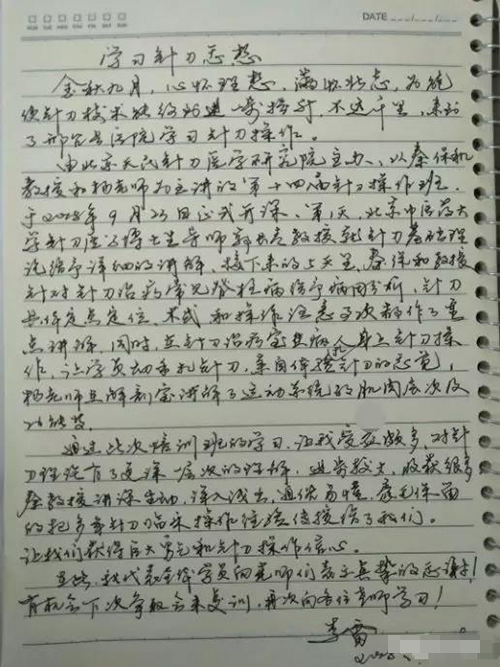 DATE
学习针刀感想
金秋九月，心怀理想，满怀壮志，为能
使针刀技术
不远千里，来到
了邢台县医院学习针刀操作。
由北京天氏针刀医学研究院主办，以秦保和
教授和杨老师为主讲的第十四届针刀操作班，
于2018年9月23日正式开课，第1天，北京中医药大
学针刀医学博士生导师 教授就针刀基础理
论给予详细的讲解，接下来的5天里，秦保和教授
针对针刀治疗常见脊柱病给予病因分析，针刀
具体定点定位，术式和操作注意事项都作了重
点讲解，同时，在针刀治疗室患病人身上针刀操
作，让学员 针刀，亲自体验针刀的感觉，
杨老师在解剖室讲解了运动系统的肌肉层次及
功能等。
通过此次培训班的学习，让我受益颇多，对针
刀理论有了更深一层次的理解，进步较大，收获很多
秦教授讲课生动，深入浅出，通俗易懂，毫无保留
的把多年针刀临床操作经验传授给了我们。
让我们获得巨大勇气和针刀操作信心。
在此，我代表全体学员向老师们表示真挚的感谢！
有机会下次争取会来复训，再次向各位老师学习！
李雷